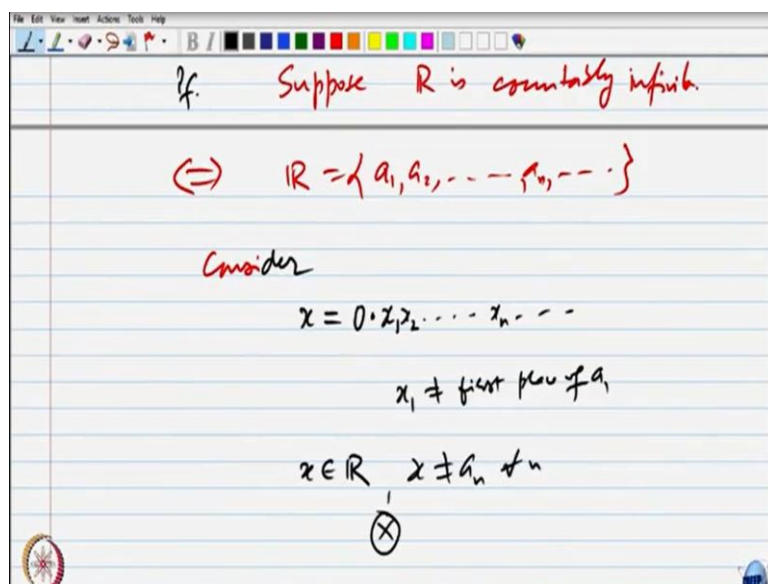 File Edit View Insert Actions Tools Help
B I
Pf. Suppose ℝ is countably infinite.
(=) ℝ = { a₁, a₂, ..... , aₙ, ---. }
Consider
x = 0.x₁x₂ ..... xₙ. - -
x₁ ≠ first place of a₁
x ∈ ℝ x ≠ aₙ ∀ n